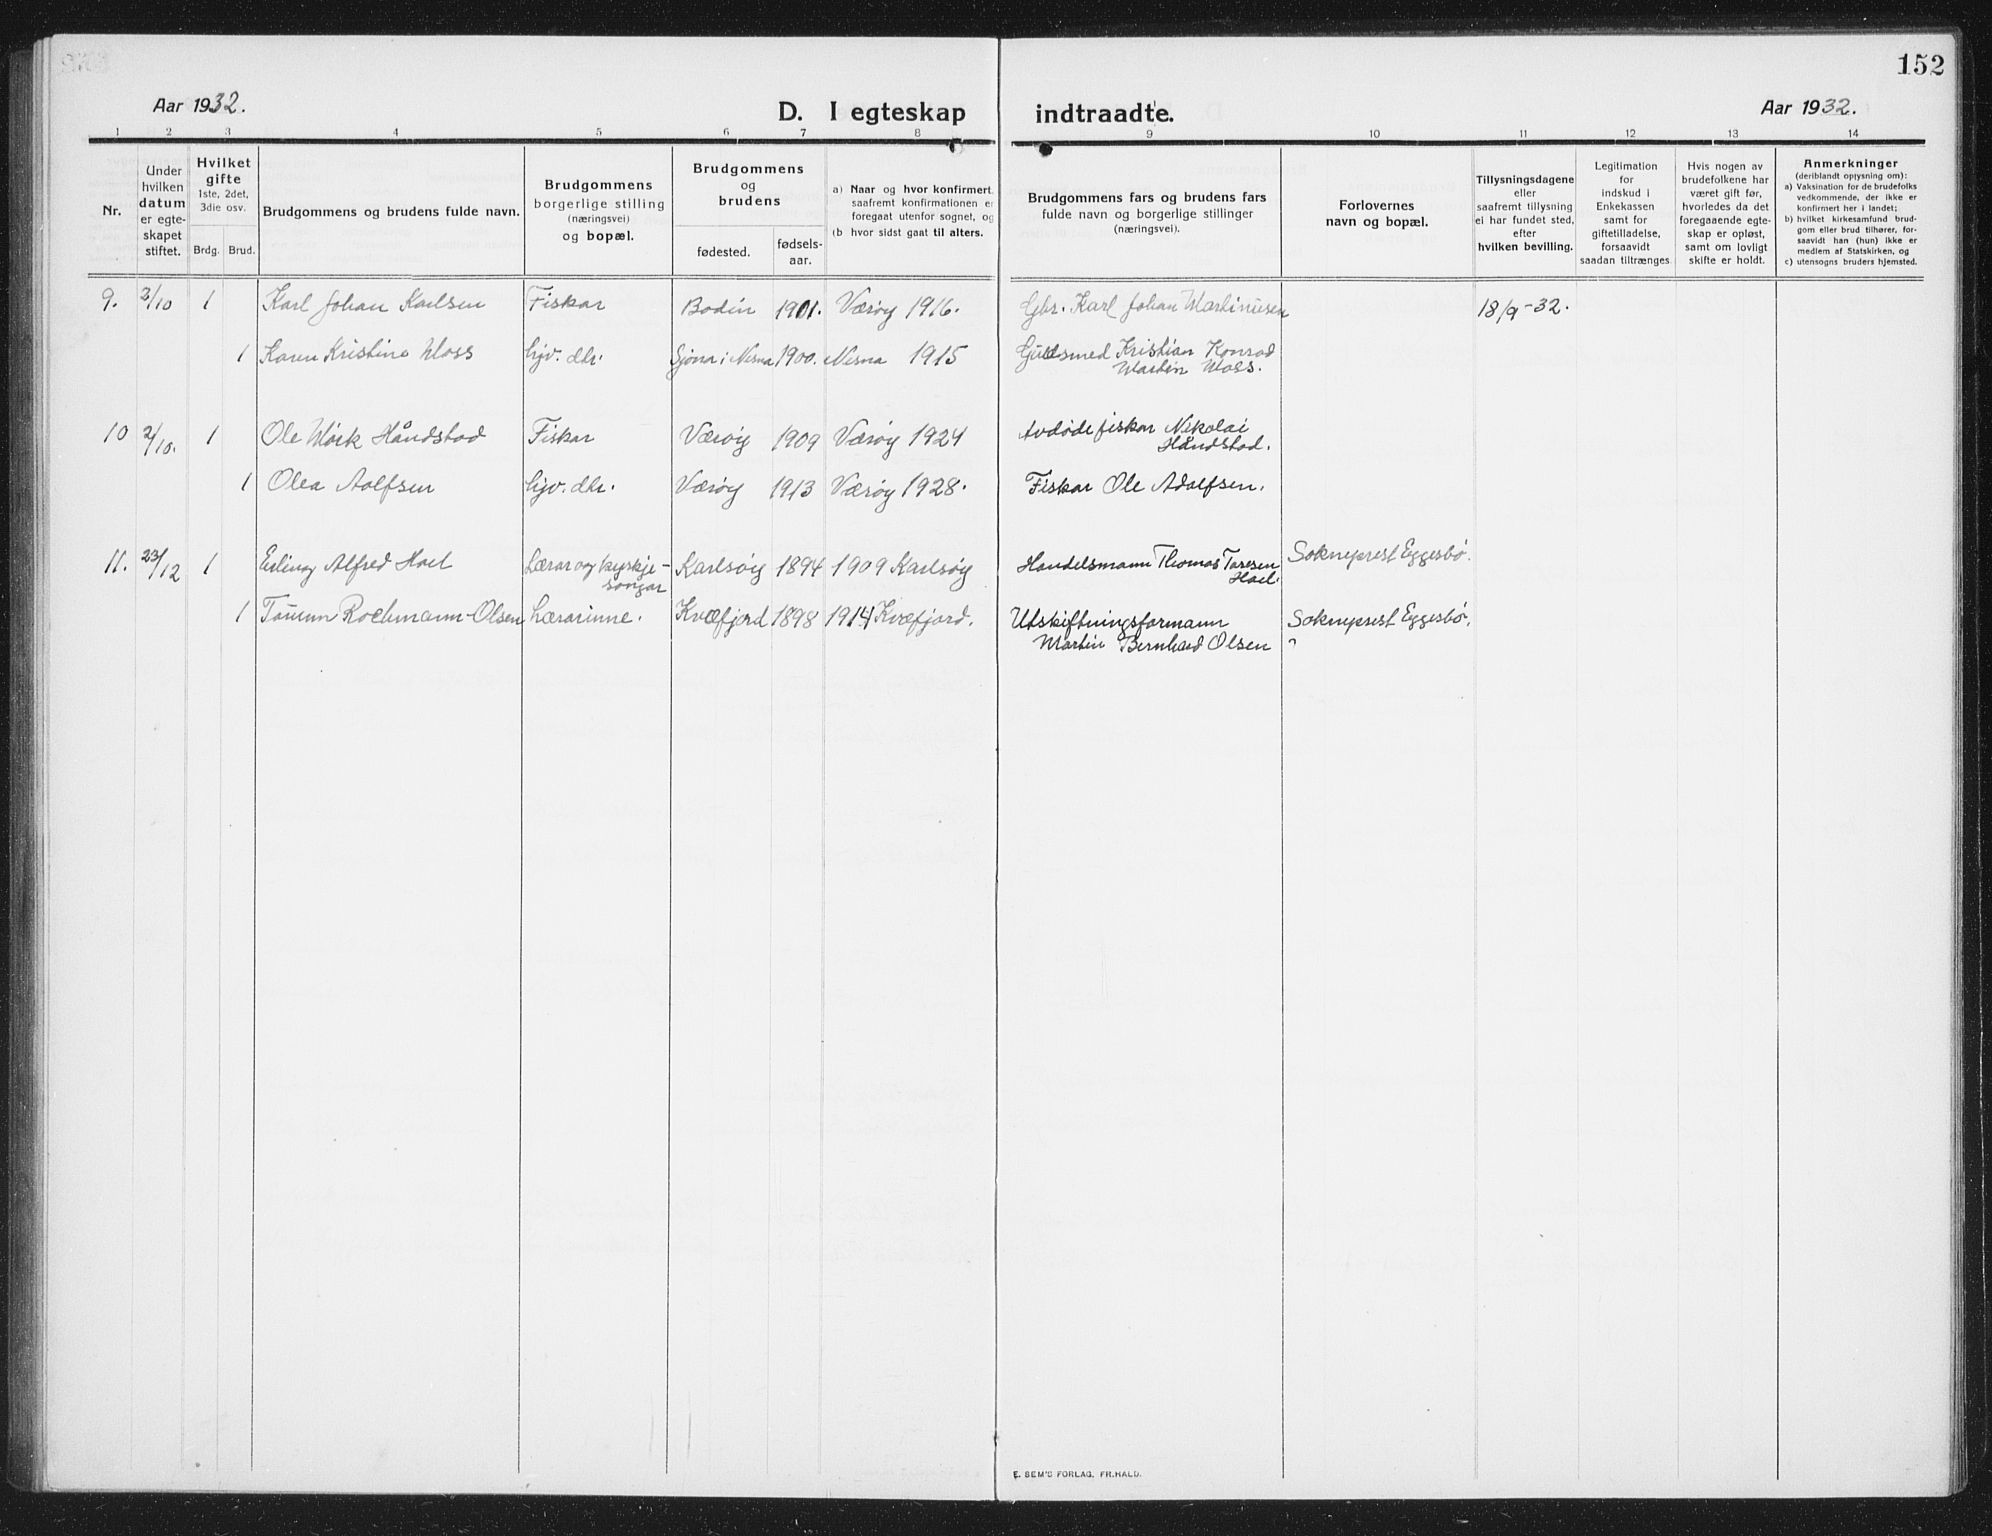 152
Aar 1932.
D. I egteskap indtraadte.
Aar 1932.
1 2 3 4 5 6 7 8 9 10 11 12 13 14
Nr.
Under hvilken datum er egteskapet stiftet.
Hvilket gifte 1ste, 2det, 3die osv.
Brdg. Brud.
Brudgommens og brudens fulde navn.
Brudgommens borgerlige stilling (næringsvei) og bopæl.
Brudgommens og brudens
fødested.
fødsels-aar.
a) Naar og hvor konfirmert, saafremt konfirmationen er foregaat utenfor sognet, og
(b hvor sidst gaat til alters.
Brudgommens fars og brudens fars fulde navn og borgerlige stillinger (næringsvei).
Forlovernes navn og bopæl.
Tillysningsdagene eller saafremt tillysning ei har fundet sted, efter hvilken bevilling.
Legitimation for indskud i Enkekassen samt for giftetilladelse, forsaavidt saadan tiltrænges
Hvis nogen av brudefolkene har været gift før, hvorledes da det foregaaende egteskap er opløst, samt om lovligt skifte er holdt.
Anmerkninger
(deriblandt opjysning om):
a) Vaksination for de brudefolks vedkommende, der ikke er konfirmert her i landet;
b) hvilket kirkesamfund brudgom eller brud tilhører, forsaavidt han (hun) ikke er medlem af Statskirken, og
c) utensogns bruders hjemsted.
9. 2/10 1 Karl Johan Karlsen Fiskar Bodin 1901. Værøy 1916. Gbr. Karl Johan Martinusen 18/9-32.
1 Karen Kristine Moss hjv. dtr. Sjona i Nesna 1900. Nesna 1915 Gullsmed Kristian Konrad
Martin Moss.
10 2/10. 1 Ole Mørk Håndstad Fiskar Værøy 1909 Værøy 1924 Avdøde fiskar Nikolai
Håndstad.
1 Olea Aolfsen hjv. dtr. Værøy 1913 Værøy 1928. Fiskar Ole Adolfsen.
11. 23/12 1 Erling Alfred Hoel Lærar og kyrkje-
songar Karlsøy 1894 1909 Karlsøy Handelsmann Thomas Taresen
Hoel. Sokneprest Eggesbø.
1 Rochmann-Olsen Lærarinne. Kvæfjord 1898 1914 Kvæfjord. Utskiftningsformann Sokneprest Eggesbø.
Martin Bernhard Olsen "
E. SEM'S FORLAG, FR.HALD.